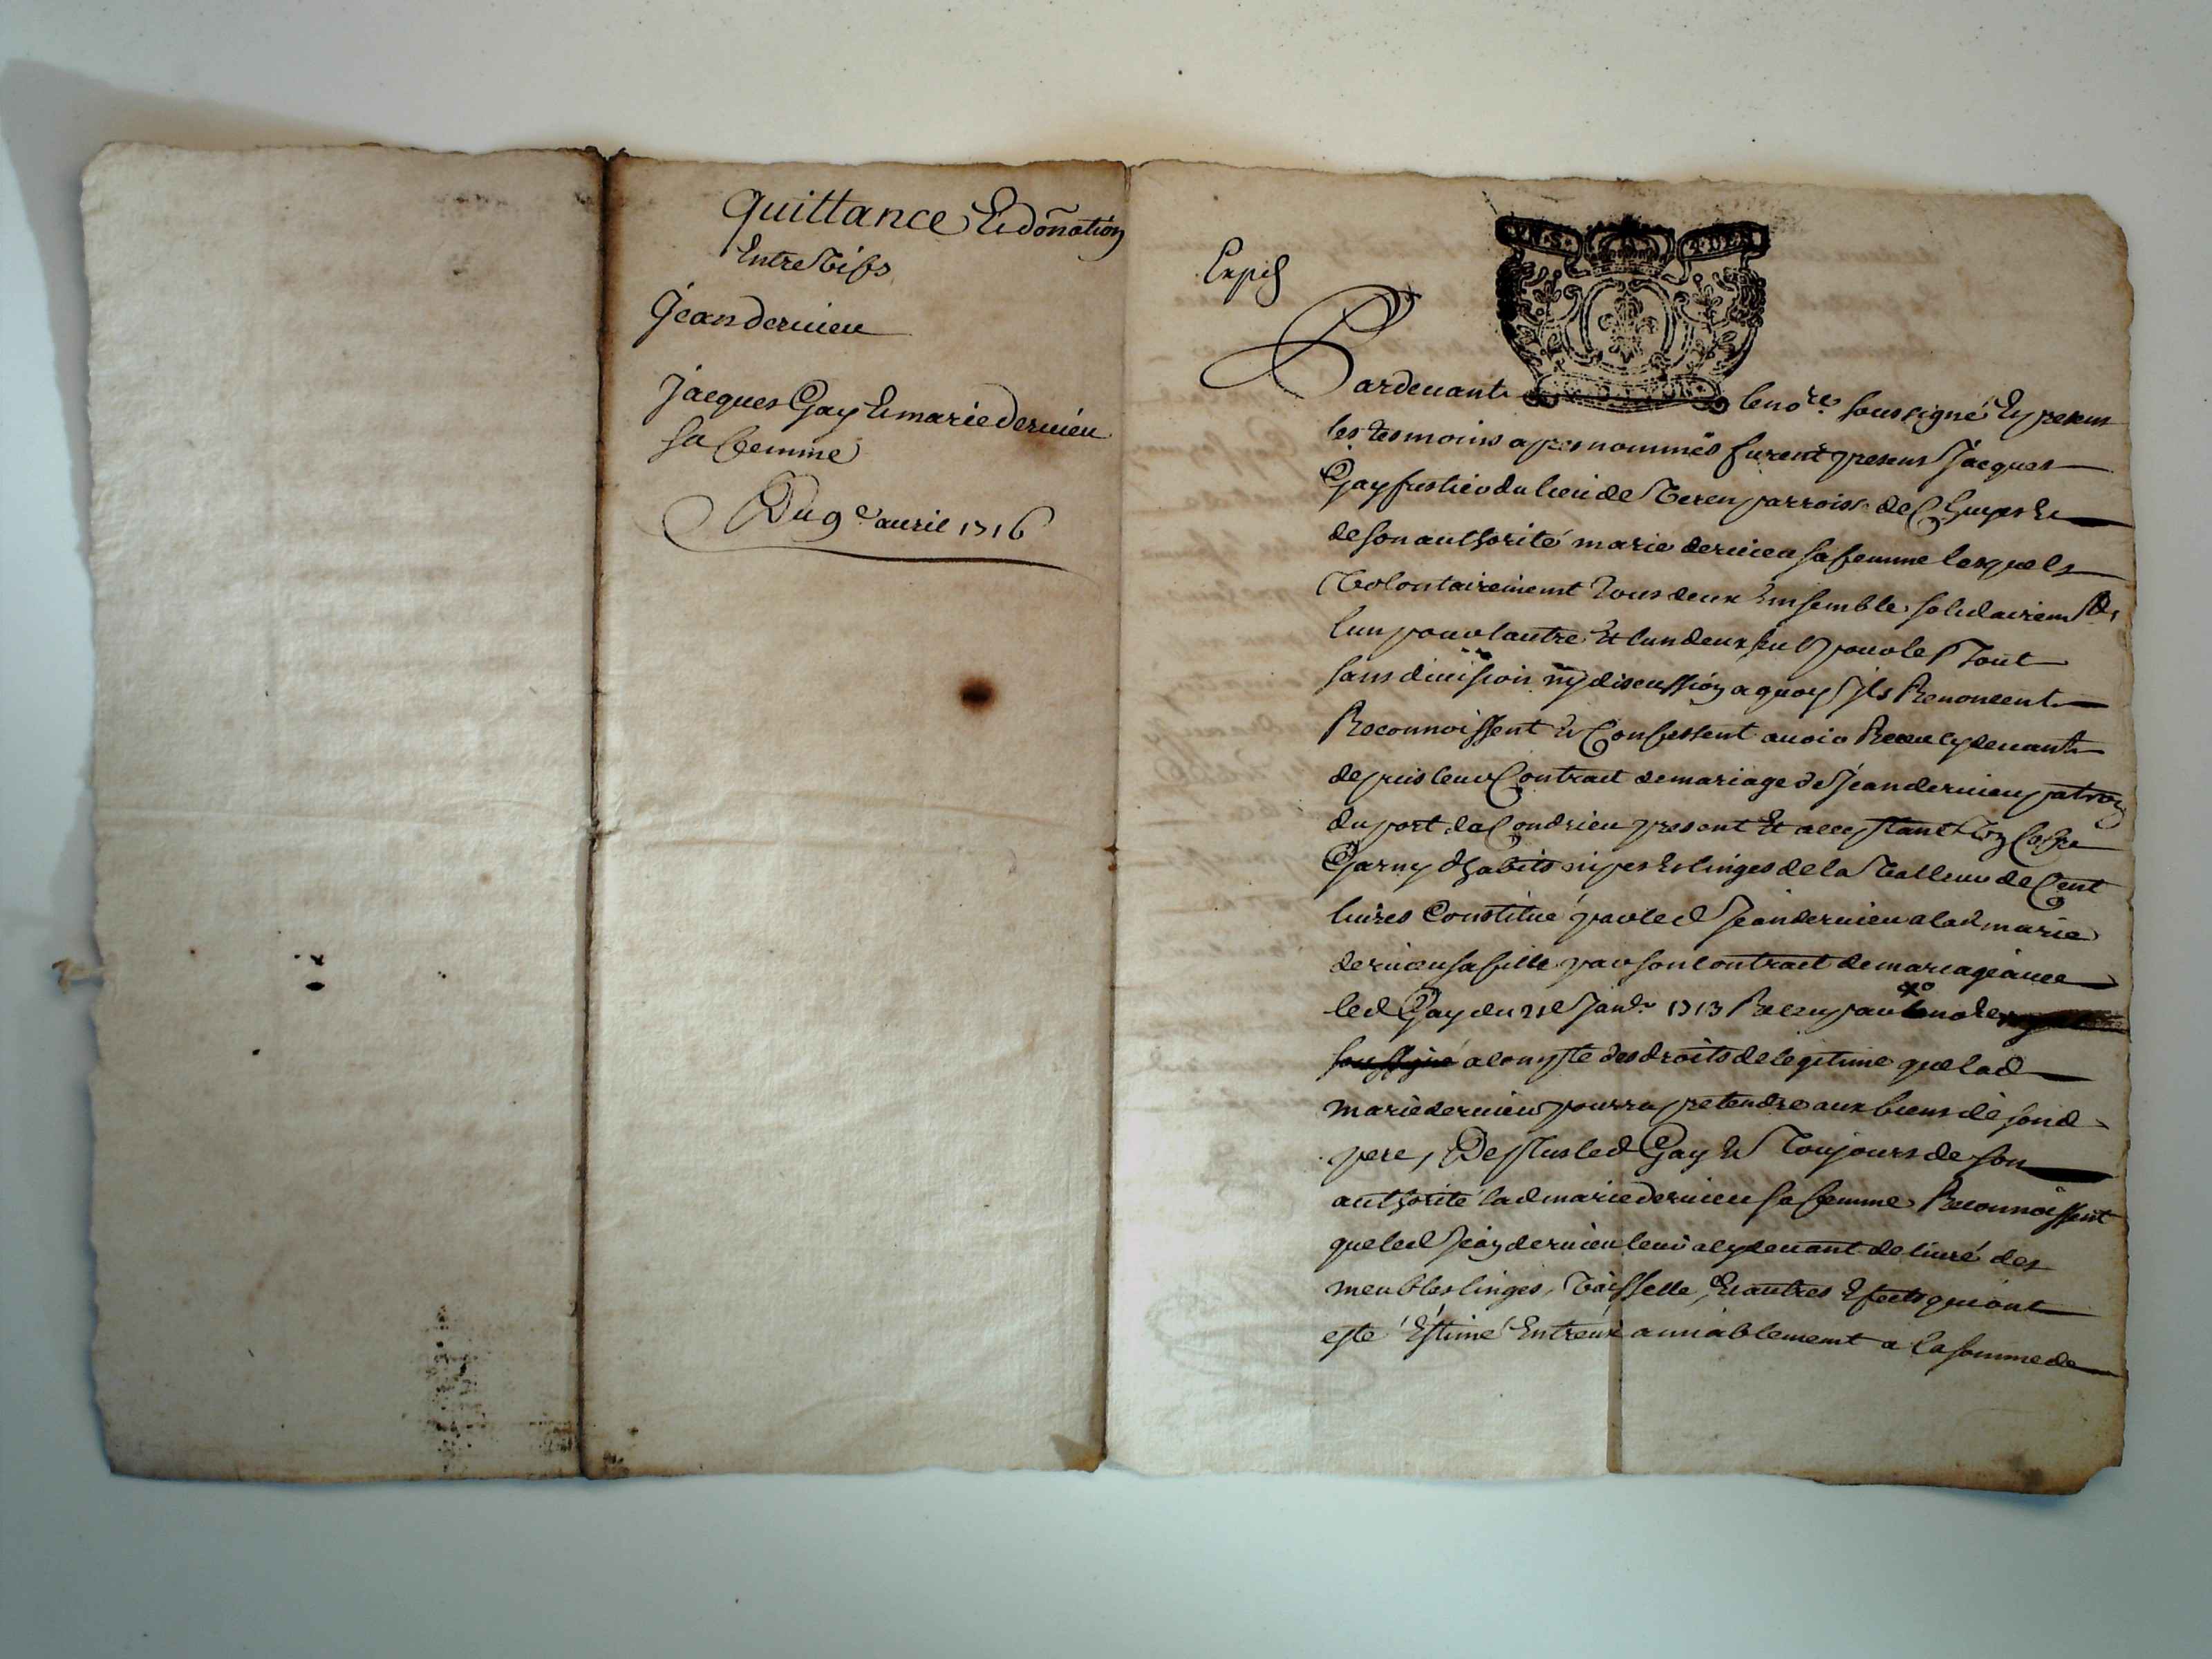 quittance Et doñation
Entre vifs
Jean dervieu
Jacques Gay Et marie dervieu
sa femme
Du 9e auril 1716
Expié
Pardeuant le nore soussigné En presence
les tesmoins apres nommés furent presens Jacques
Gay fustier du lieu de Veren parroisse de Et
de son authorité marie dervieu sa femme lesquels
Volontairement tous deux Ensemble solidairemt
lun pour lautre Et lun deux seul pour le Tout
sans diuision ny discussion a quoy Ils Renoncent
Reconnoissent Et Confessent auoir Receu cy deuant
depuis leur Contract de mariage de Jean dervieu patron
du port de Condrieu present Et acceptant Vn Coffre
Garny dhabits nipes Et linges de la Valleur de Cent
liures Constitué par led Jean dervieu a lad marie
dervieu sa fille par son contract de mariage auec
led Gay du 21e Janr 1713 Receu par
soussigné a compte des droits de legitime que lad
marie dervieu pourra pretendre aux biens de sond
pere, De plus led Gay Et Toujours de son
authorité lad marie dervieu sa femme Reconnoissent
que led Jean dervieu leur a cy deuant deliuré des
meubles linges, Vaisselle, Et autres Efects qui ont
esté Estimé Entreux amiablement a la somme de